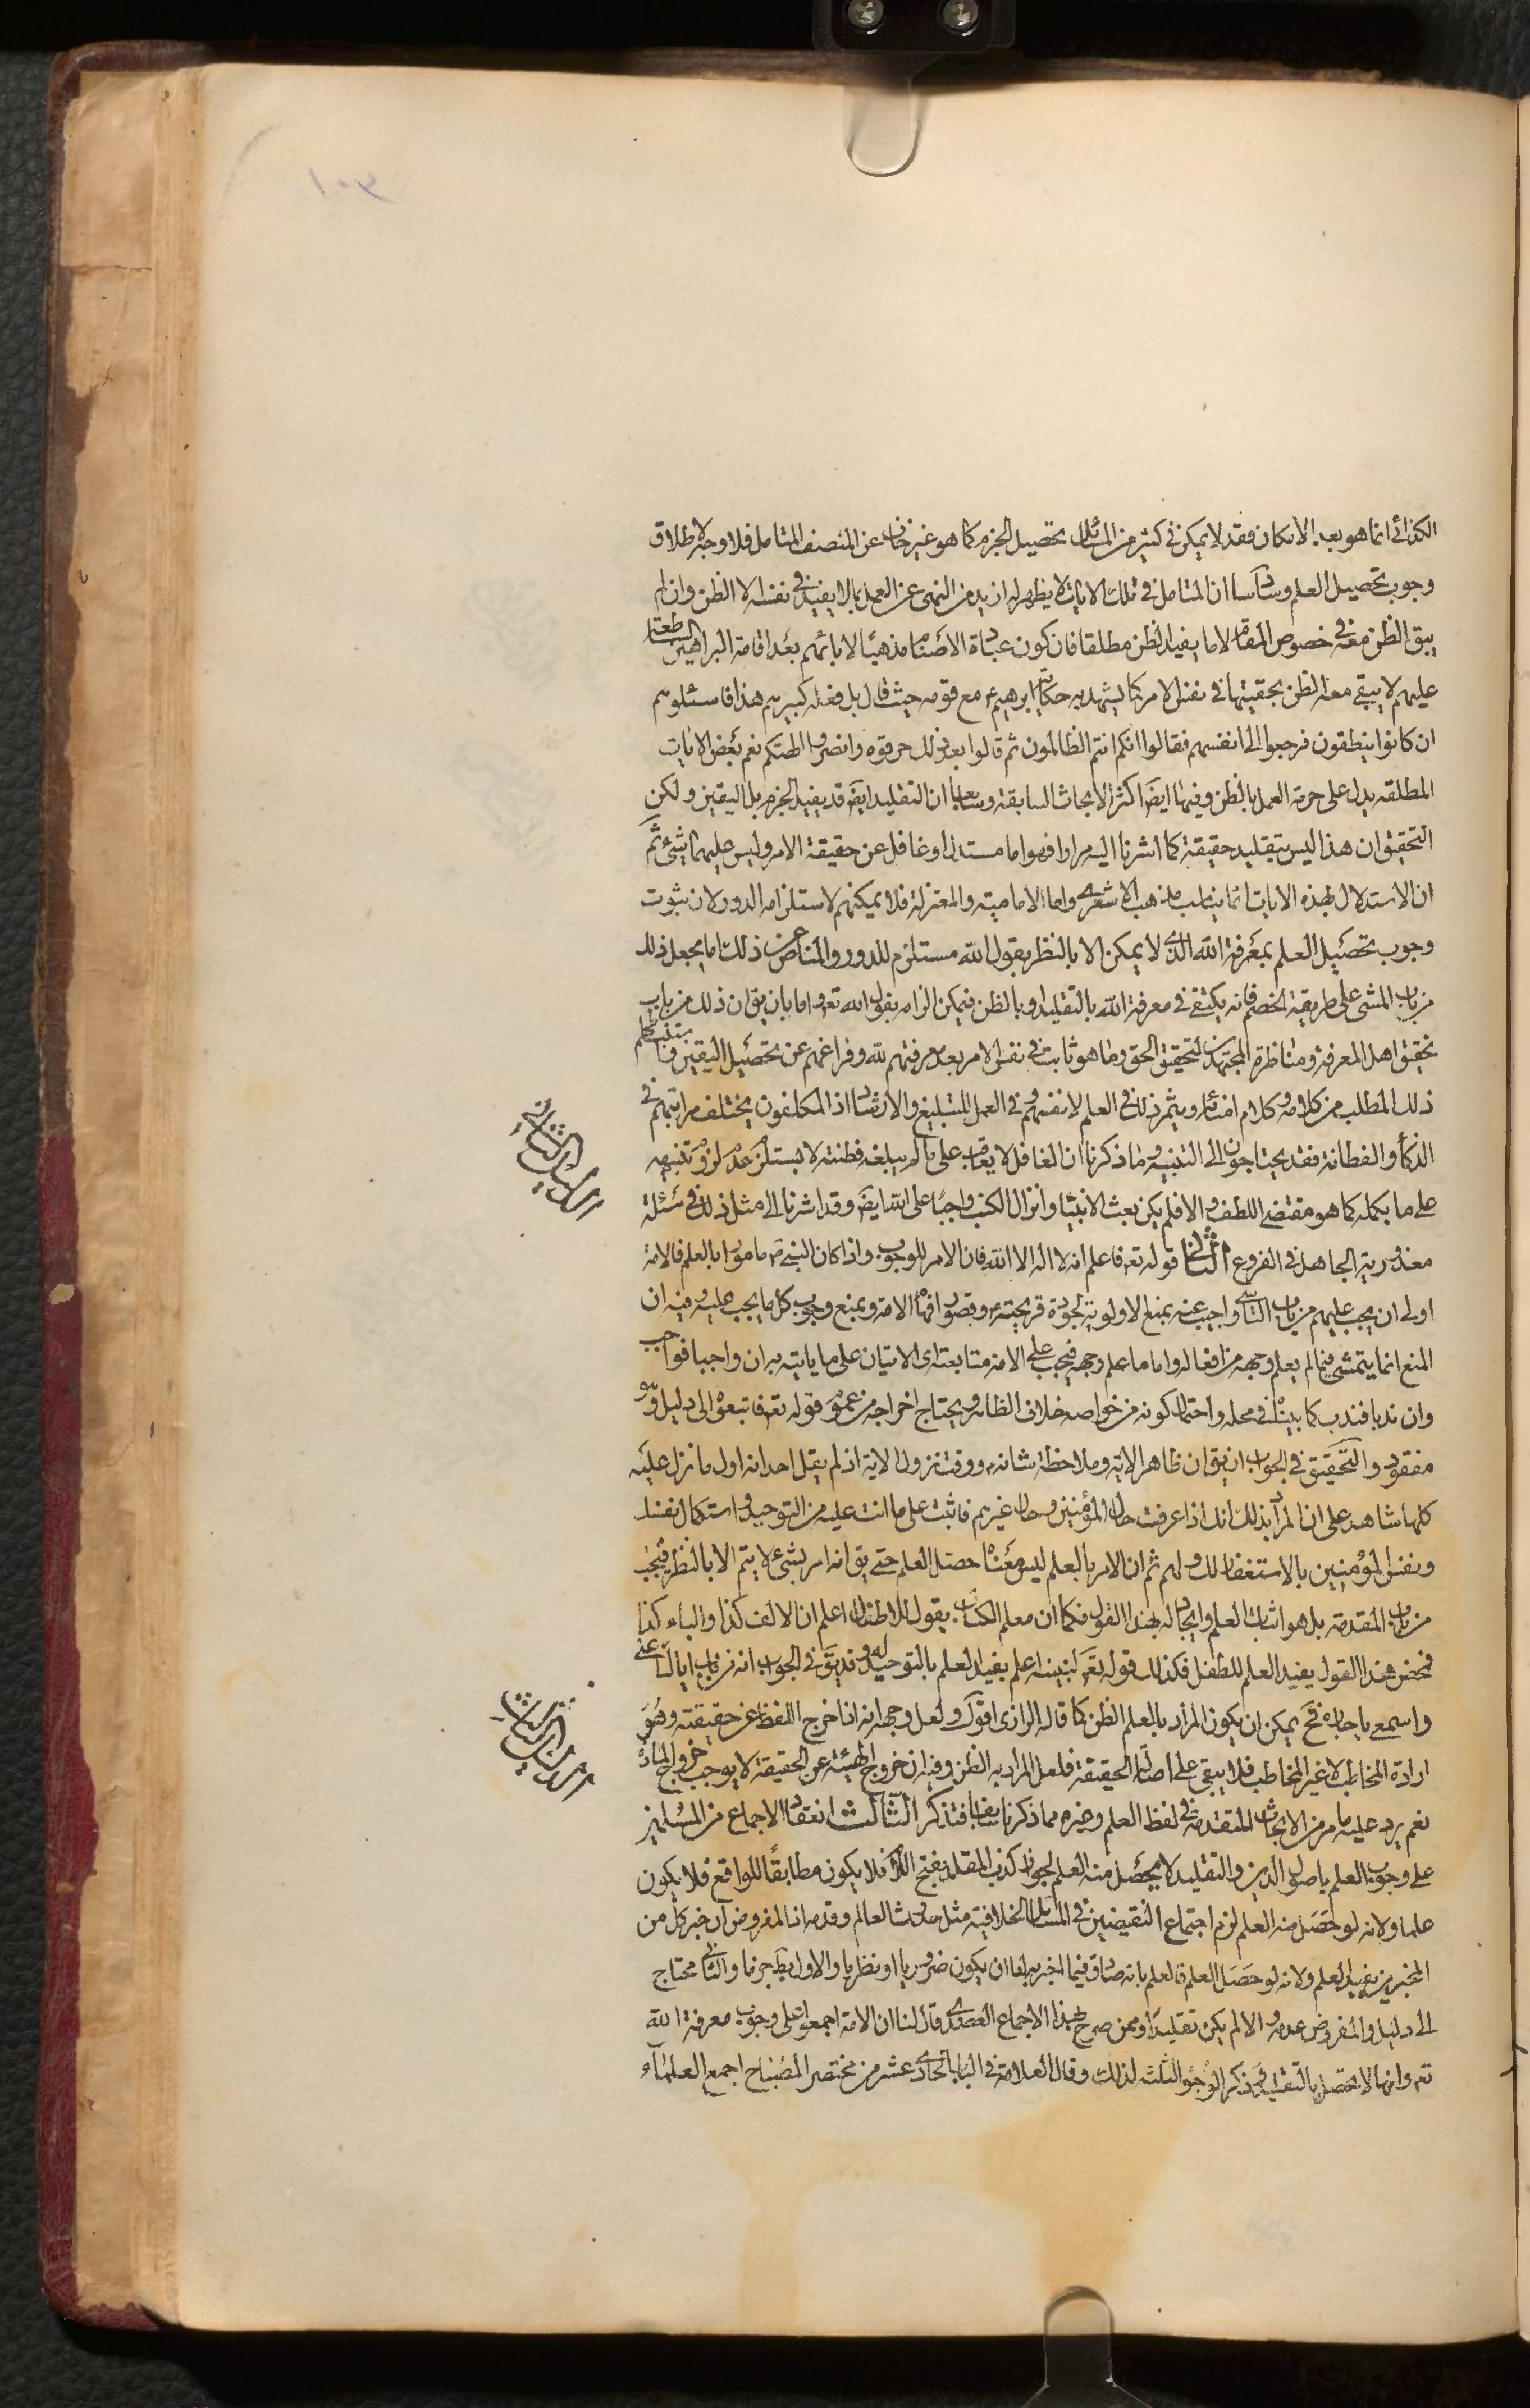 الكذائى انما هو بعد الامكان فقد لا يمكن فى كثير من المسائل تحصيل الجزم كما هو غير خاف عن المنصف المتامل فلا وجه لاطلاق
وجوب تحصيل العلم وسادسا ان المتامل فى تلك الايات لا يظهر له ازيد من النهى عن العمل بما لا يفيد فى نفسه الا الظن وان لم
يبق الظن معه فى خصوص المقام لا ما يفيد الظن مطلقا فان كون عبادة الاصنام مذهبا لابائهم بعد اقامة البراهين الساطعة
عليهم لا يبقى معه الظن بحقيتها فى نفس الامر كما يشهد به حكاية ابرهيم ع مع قومه حيث قال بل فعله كبيرهم هذا فاسئلوهم
ان كانوا ينطقون فرجعوا الى انفسهم فقالوا انكم انتم الظالمون ثم قالوا بعد ذلك حرقوه وانصروا الهتكم نعم بعض الايات
المطلقه يدل على حرمة العمل بالظن وفيها ايضا اكثر الابحاث السابقة وسابعا ان التقليد ايضا قد يفيد الجزم بل اليقين ولكن
التحقيق ان هذا ليس بتقليد حقيقة كما اشرنا اليه مرارا فهو اما مستدل او غافل عن حقيقة الامر وليس عليهما شىء ثم
ان الاستدلال بهذه الايات انما يناسب مذهب الاشعرى واما الامامية والمعتزلة فلا يمكنهم لاستلزامه الدور ولان ثبوت
وجوب تحصيل العلم بمعرفة الله الذى لا يمكن الا بالنظر بقول الله مستلزم للدور والمناص عن ذلك اما بجعل ذلك
من باب المشى على طريقة الخصم فانه يكتفى فى معرفة الله بالتقليد او بالظن فيمكن الزامه بقول الله تعه واما بان يق ان ذلك من باب
تحقيق اهل المعرفة ومناظرة المجتهدين لتحقيق الحق وما هو ثابت فى نفس الامر بعد معرفتهم لله وفراغهم عن تحصيل اليقين
ذلك المطلب من كلامه وكلام امنائه ويثمر ذلك فى العلم لانفسهم وفى العمل للتبليغ والارشاد اذ المكلفون يختلف مراتبهم فى
الذكاء والفطانة فقد يحتاجون الى التنبيه وما ذكرنا ان الغافل لا يعاقب على ما لم يبلغه فطنته لا يستلزم عدم لزوم تنبيهه
على ما يكمله كما هو مقتضى اللطف والا فلم يكن بعث الانبيا وانزال الكتب واجبا على الله ايضا وقد اشرنا الى مثل ذلك فى مسئلة
معذورية الجاهل فى الفروع الثانى قوله تعه فاعلم انه لا اله الا الله فان الامر للوجوب واذا كان النبى ص مامورا بالعلم فالامة
اولى ان يجب عليهم من باب التاسى واجيب عنه بمنع الاولوية لجودة قريحته ص وقصور افهام الامة وبمنع وجوب كل ما يجب عليه وفيه ان
المنع انما يتمشى فيما لم يعلم وجهه من افعاله واما ما علم وجهه فيجب على الامة متابعته اى الاتيان على ما ياتيه به ان واجبا فواجب
وان ندبا فندب كما بيناه فى محله واحتمال كونه من خواصه خلاف الظاهر ويحتاج اخراجه من عموم قوله تعه فاتبعوه الى دليل وهو
مفقود والتحقيق فى الجواب ان يق ان ظاهر الاية وملاحظة شانه ص ووقت نزول الاية اذ لم يقل احد انه اول ما نزل عليه
كلها شاهد على ان المراد بذلك انك اذا عرفت حال المؤمنين وحال غيرهم فاثبت على ما انت عليه من التوحيد واستكمال نفسك
ونفس المؤمنين بالاستغفار لك ولهم ثم ان الامر بالعلم ليس معناه حصل العلم حتى يق انه امر بشىء لا يتم الا بالنظر فيجب
من باب المقدمة بل هو اثبات العلم وايجاد له بهذا القول فكما ان معلم الكتاب يقول للاطفال اعلم ان الالف كذا والباء كذا
فمحض هذا القول يفيد العلم للطفل فكذلك قوله تعه لنبيه اعلم يفيد العلم بالتوحيد له وقد يق فى الجواب انه من باب اياك اعنى
واسمعى يا جاره فح يمكن ان يكون المراد بالعلم الظن كما قاله الرازى اقول ولعل وجهه انه اذا خرج اللفظ عن حقيقته وهو
ارادة المخاطب لا غير المخاطب فلا يبقى على اصالة الحقيقة فلعل المراد به الظن وفيه ان خروج الهيئة عن الحقيقة لا يوجب خروج المادة
نعم يرد عليه ما مر من الابحاث المتقدمة فى لفظ العلم وغيره مما ذكرنا سابقا فتذكر الثالث انعقاد الاجماع من المسلمين
على وجوب العلم باصول الدين والتقليد لا يحصل منه العلم لجواز كذب المقلد بفتح اللام فلا يكون مطابقا للواقع فلا يكون
علما ولانه لو حصل منه العلم لزم اجتماع النقيضين فى المسائل الخلافية مثل حدوث العالم وقدمه اذ المفروض ان خبر كل من
المخبرين يفيد العلم ولانه لو حصل العلم فالعلم بانه صادق فيما اخبر به اما ان يكون ضروريا او نظريا والاول بط جزما والثانى محتاج
الى دليل والمفروض عدمه والا لم يكن تقليدا وممن صرح بهذا الاجماع العضدى قال لنا ان الامة اجمعوا على وجوب معرفة الله
تعه وانها لا تحصل بالتقليد وذكر الوجوه الثلث لذلك وقال العلامة فى الباب الحادى عشر من مختصر المصباح اجمع العلماء
الدليل الثانى
الدليل الثالث